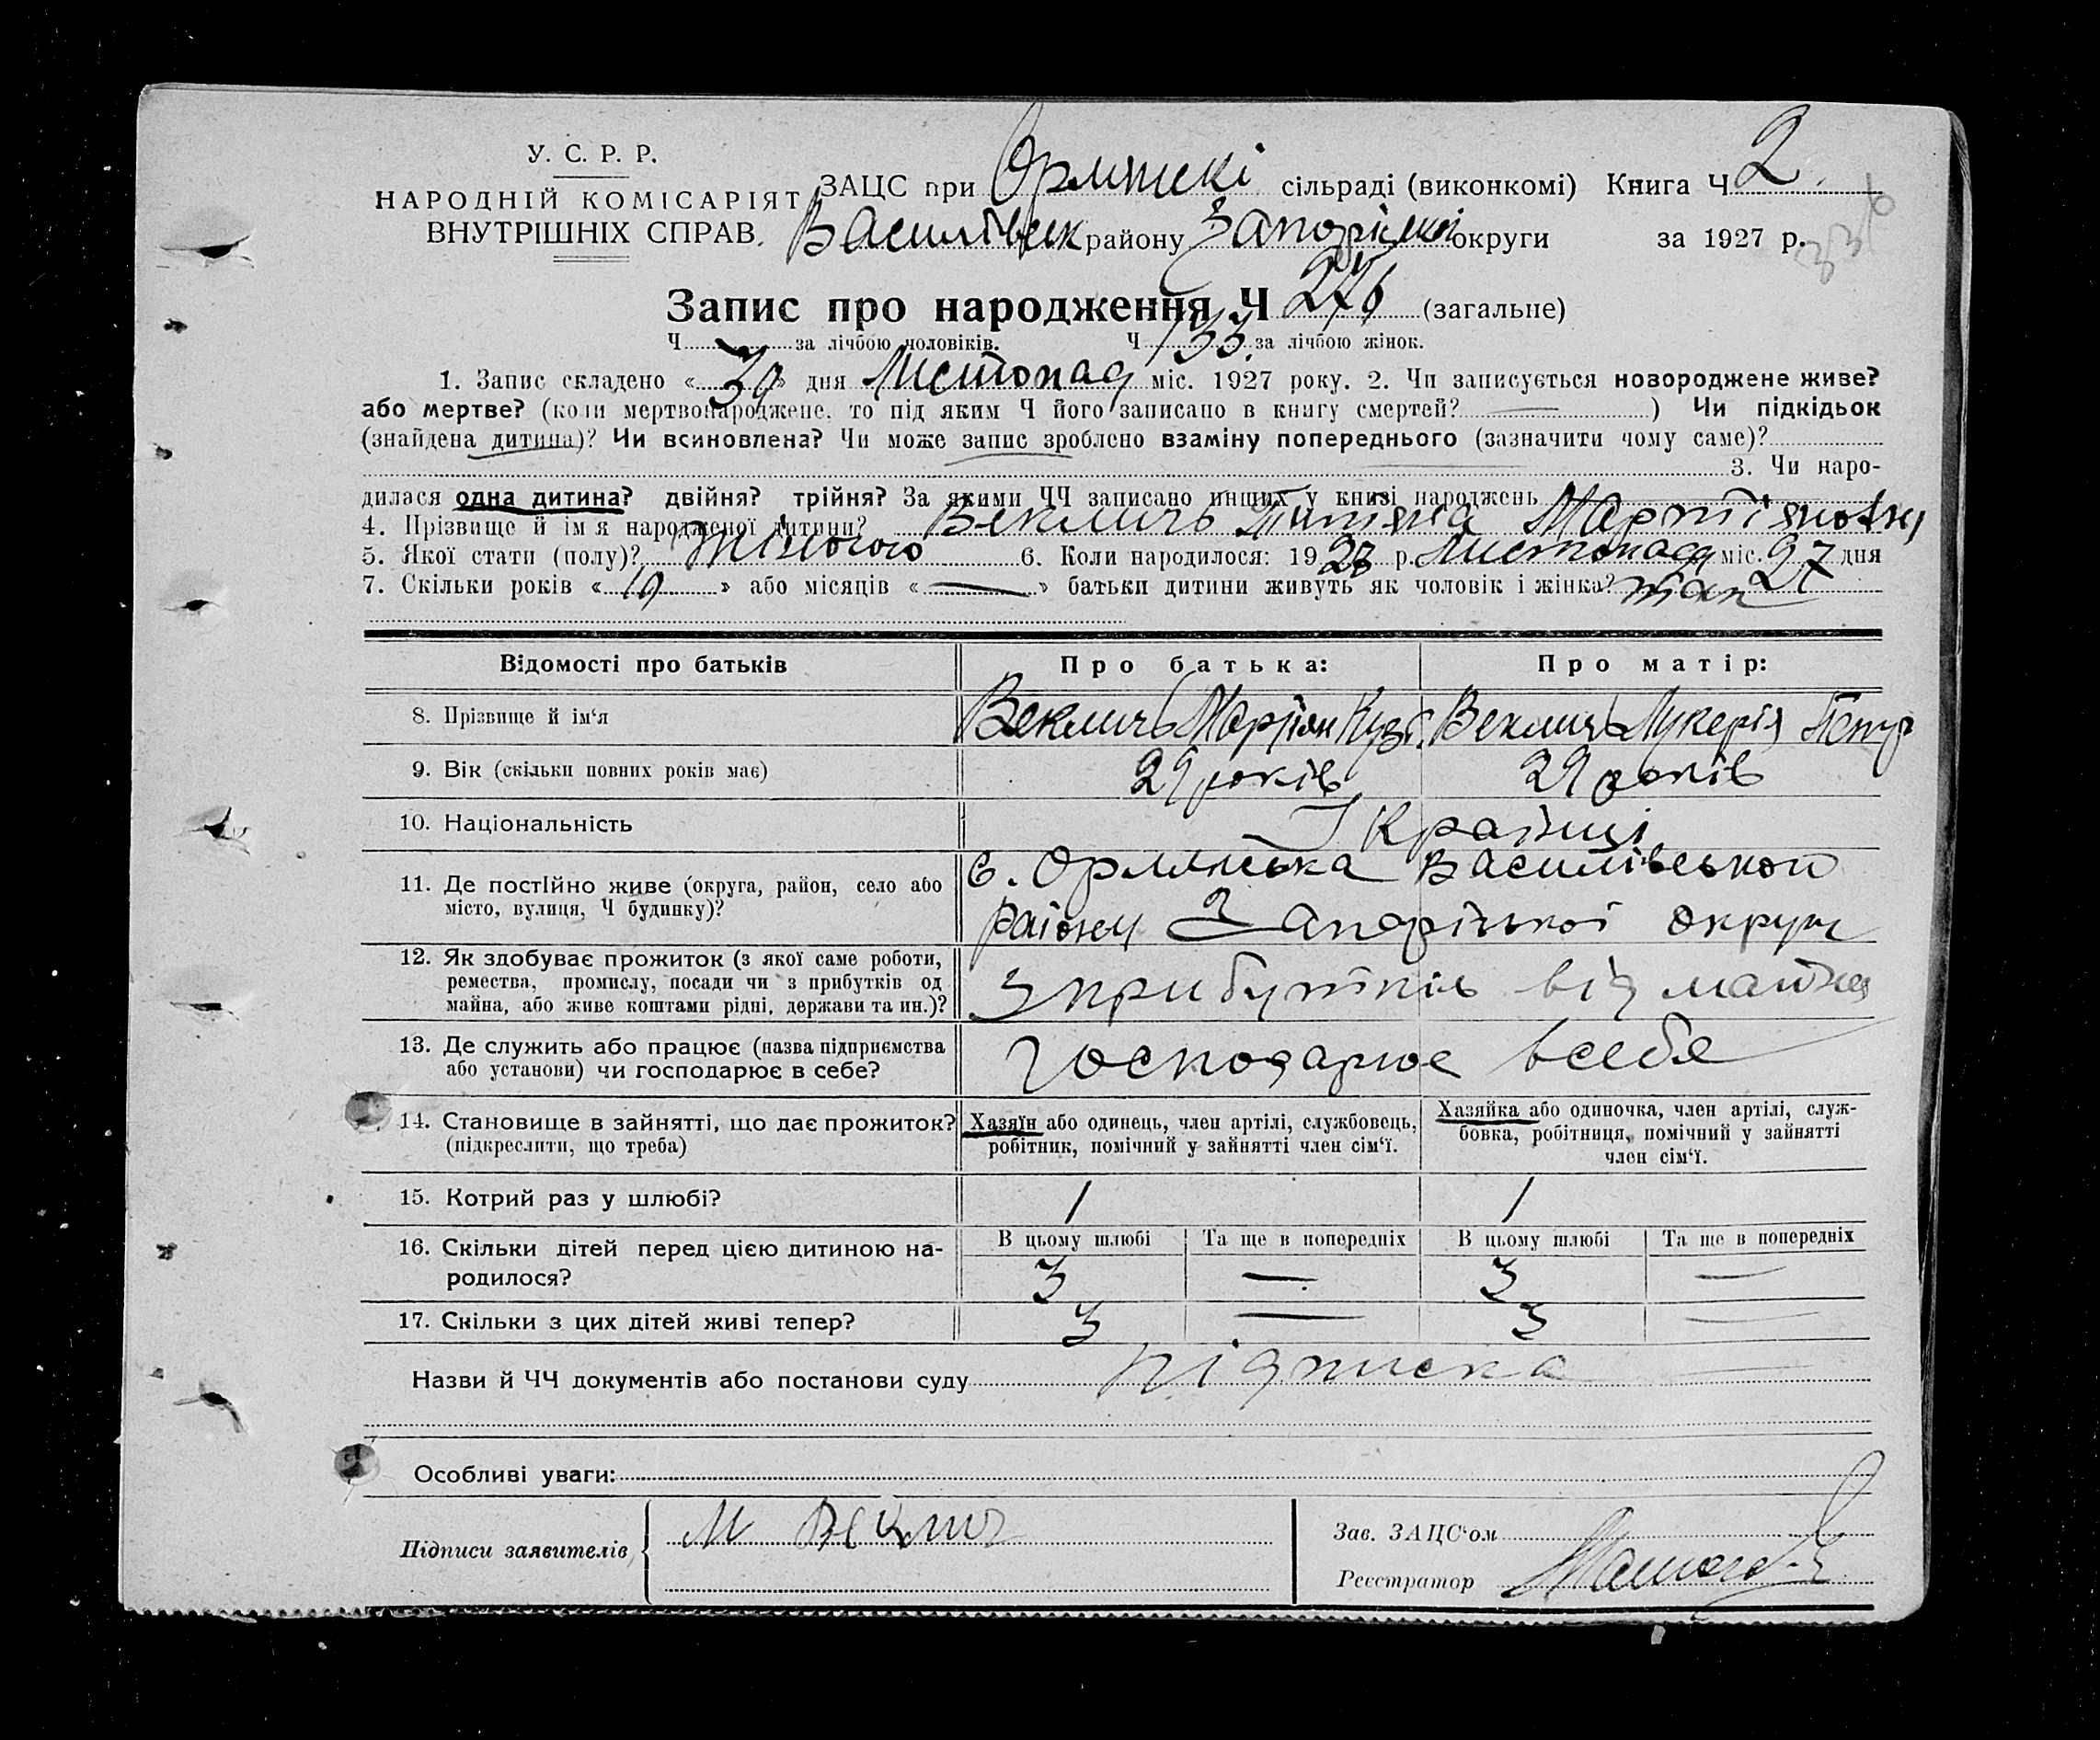 У. С. Р. Р.
НАРОДНІЙ КОМІСАРІЯТ
ВНУТРІШНІХ СПРАВ.
ЗАЦС при Орлянскі сільраді (виконкомі) Книга Ч 2.
Василівск району Запорізької округи за 1927 р.
Запис про народження Ч 276 (загальне)
Ч за лічбою чоловіків. Ч 133 за лічбою жінок.
1. Запис складено « 30 » дня Листопад міс. 1927 року. 2. Чи записується новороджене живе?
або мертве? (коли мертвонароджене, то під яким Ч його записано в книгу смертей? — ) Чи підкідьок
(знайдена дитина)? Чи всиновлена? Чи може запис зроблено взаміну попереднього (зазначити чому саме)?
3. Чи наро-
дилася одна дитина? двійня? трійня? За якими ЧЧ записано инших у книзі народжень
4. Прізвище й ім я народженої дитини? Векличь Титяна Мартіяновна
5. Якої стати (полу)? Жіночого 6. Коли народилося: 1927 р. Листопада міс. 27 дня
7. Скільки років « 10 » або місяців « — » батьки дитини живуть як чоловік і жінка? так
Відомості про батьків Про батька: Про матір:
8. Прізвище й ім‘я Векличь Мартіян Кузь. Векличь Лукерія Петр
9. Вік (скільки повних років має) 29 років 29 років
10. Національність Україниці
11. Де постійно живе (округа, район, село або
місто, вулиця, Ч будинку)?
С. Орлянська Василівського
району Запорізької округи
12. Як здобуває прожиток (з якої саме роботи,
ремества, промислу, посади чи з прибутків од
майна, або живе коштами рідні, держави та ин.)?
з прибутків від майна
13. Де служить або працює (назва підприємства
або установи) чи господарює в себе?
господарює в себе
14. Становище в зайнятті, що дає прожиток?
(підкреслити, що треба)
Хазяїн або одинець, член артілі, службовець,
робітник, помічний у зайнятті член сім‘ї.
Хазяйка або одиночка, член артілі, служ-
бовка, робітниця, помічний у зайнятті
член сім‘ї.
15. Котрий раз у шлюбі? 1 1
16. Скільки дітей перед цією дитиною на-
родилося?
В цьому шлюбі Та ще в попередніх В цьому шлюбі Та ще в попередніх
3 — 3 —
17. Скільки з цих дітей живі тепер? 3 — 3 —
Назви й ЧЧ документів або постанови суду підписка —
Особливі уваги:
Підписи заявителів М Веклич
Зав. ЗАЦС‘ом
Реєстратор